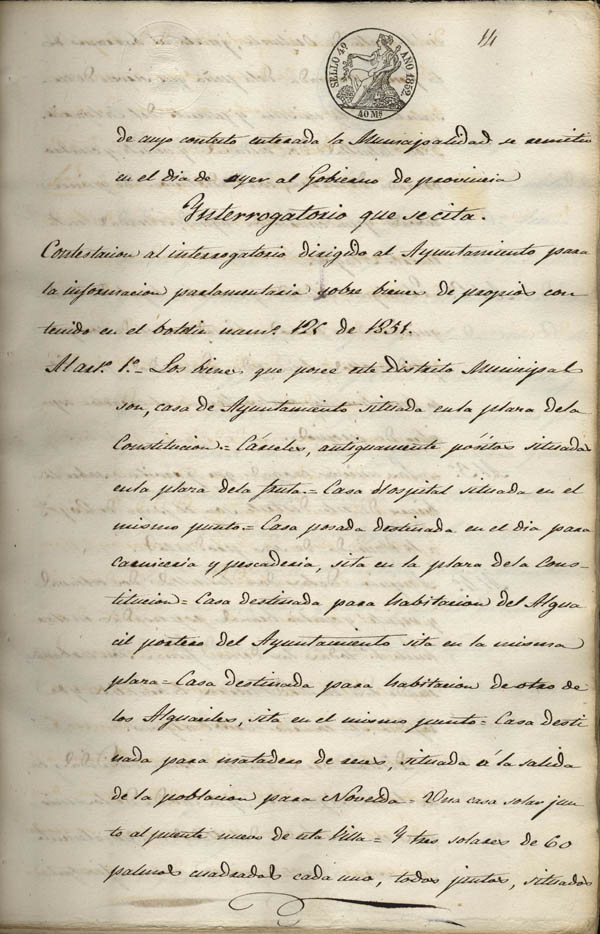 14
SELLO 4º AÑO 1852.
40 Ms
de cuyo contesto enterada la Municipalidad se remitio
en el dia de ayer al Gobierno de provincia
Interrogatorio que se cita.
Contestacion al interrogatorio dirigido al Ayuntamiento para
la informacion parlamentaria sobre bienes de propios con-
tenido en el boletin num.º de 1851.
Al art.º 1.º = Los bienes que posee este distrito Municipal
son, casa de Ayuntamiento situada en la plaza de la
Constitucion = Cárceles, antiguamente pósitos situadas
en la plaza de la fruta = Casa Hospital situada en el
mismo punto = Casa posada destinada en el dia para
carniceria y pescaderia, sita en la plaza de la Cons-
titucion = Casa destinada para habitacion del Algua
cil portero del Ayuntamiento sita en la misma
plaza = Casa destinada para habitacion de otro de
los Alguaciles, sita en el mismo punto = Casa desti
nada para matadero de reses, situada á la salida
de la poblacion para Novelda = Una casa solar jun
to al puente nuevo de esta Villa = Y tres solares de 60
palmos cuadrados cada uno, todos juntos, situados